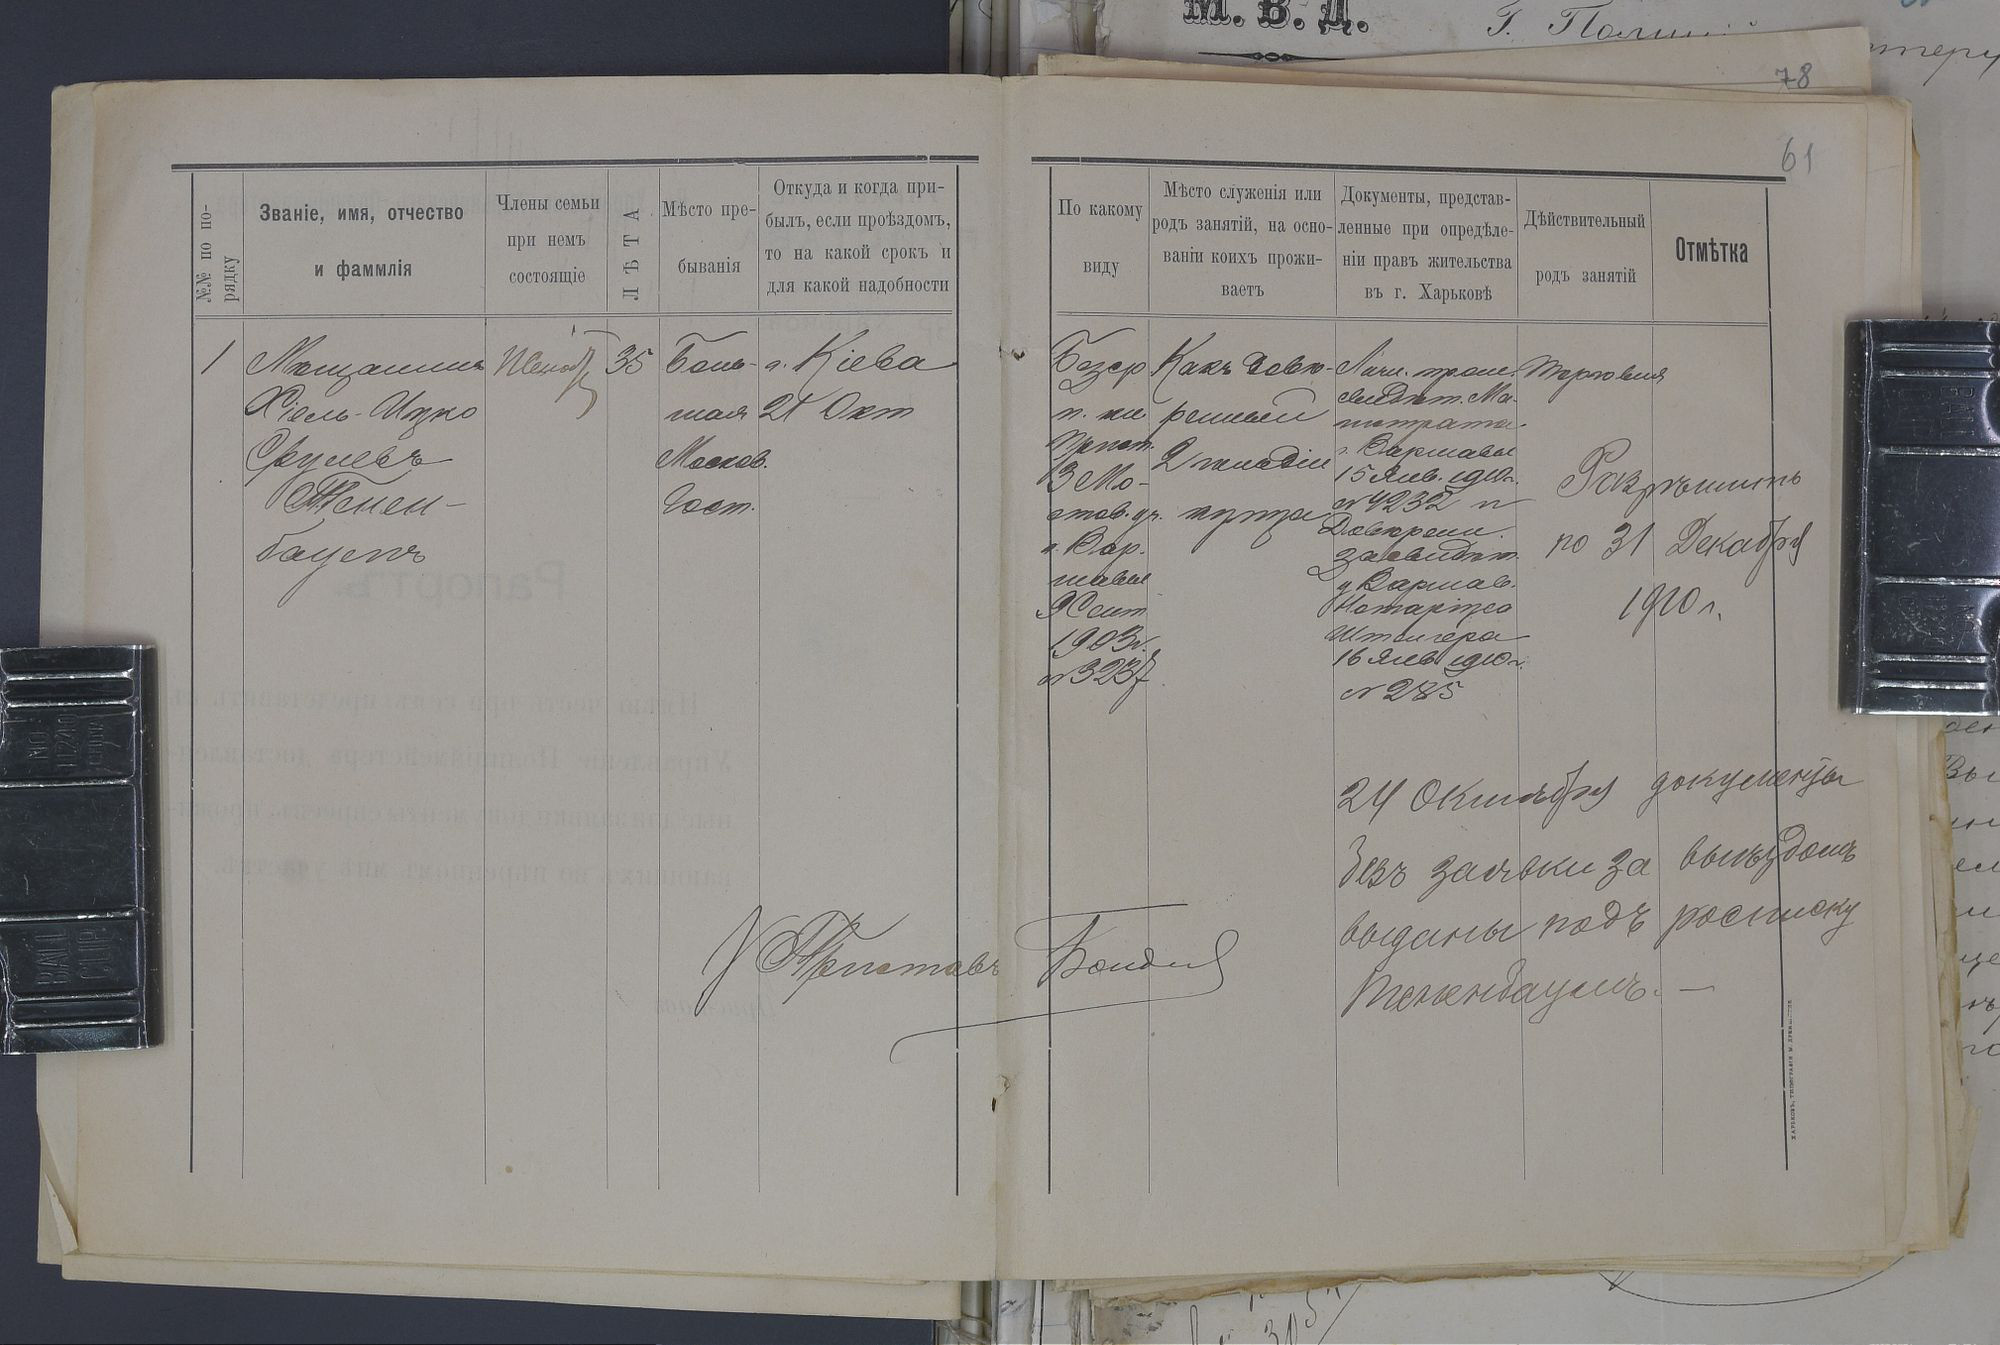 М. В. Д.
Г. Полиций
78
61
№№ по по-
рядку
Званіе, имя, отчество
и фаммлія
Члены семьи
при немъ
состоящіе
ЛѢТА
Мѣсто пре-
быванія
Откуда и когда при-
былъ, если проѣздомъ,
то на какой срокъ и
для какой надобности
По какому
виду
Мѣсто служенія или
родъ занятій, на осно-
ваніи коихъ прожи-
ваетъ
Документы, представ-
ленные при опредѣле-
ніи правъ жительства
въ г. Харьковѣ
Дѣйствительный
родъ занятій
Отмѣтка
1
Мѣщанинъ
Хіель-Ицко
Срулевъ
Тенен-
баумъ
35
Боль-
шая
Москов.
Гост.
г. Кіева
21 Окт
Безср
п. кн
Прист.
3 Мо-
стов. уч.
г. Вар-
шавы
9 Сент.
1903 г.
№ 3237
Какъ довѣ-
ренный
2 гильдіи
купца
Личн. пром.
свидѣт. Ма-
гистрата
г. Варшавы
15 Янв. 1910 г.
№ 4232 и
Довѣрен.
засвидѣт.
у Варшав.
Нотаріуса
16 Янв 1910 г.
№ 285
Торговля
Разрѣшить
по 31 Декабря
1910 г.
24 Октября документы
безъ заявки за выѣздомъ
выданы подъ росписку
Тененбаумъ. —
Приставъ
ХАРЬКОВЪ, ТИПОГРАФІЯ
Рапортъ.
BALL
CLIP